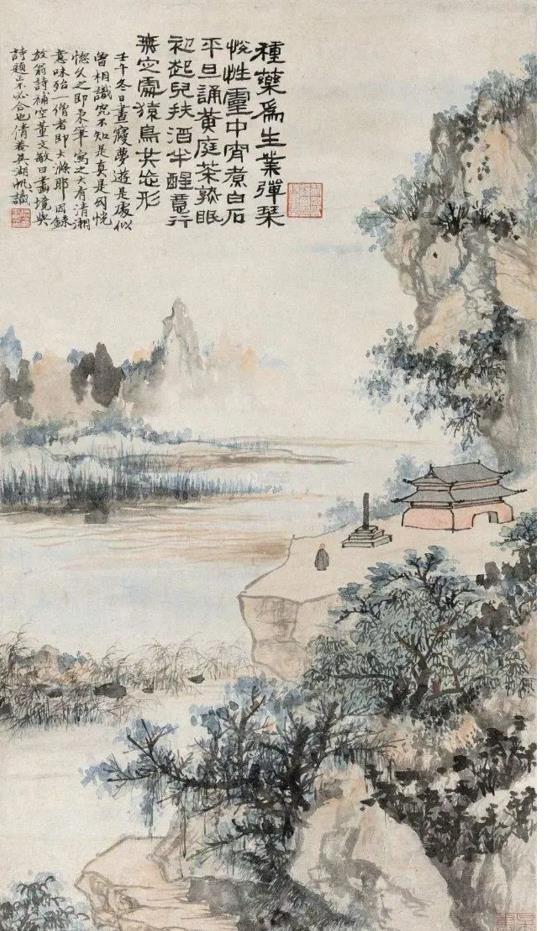 種藥為生業彈琹
悅性靈中宵煮白石
平旦誦黃庭茶熟眠
初起兒扶酒半醒意行
無定處猿鳥共忘形
壬午冬日晝寢夢遊是處似
曾相識究不知是真是幻恍
惚久之即秉筆寫之大有清湘
意味殆一僧者即大滌耶因錄
放翁詩補空董文敏曰畫境與
詩題正不必合也倩菴吳湖帆識